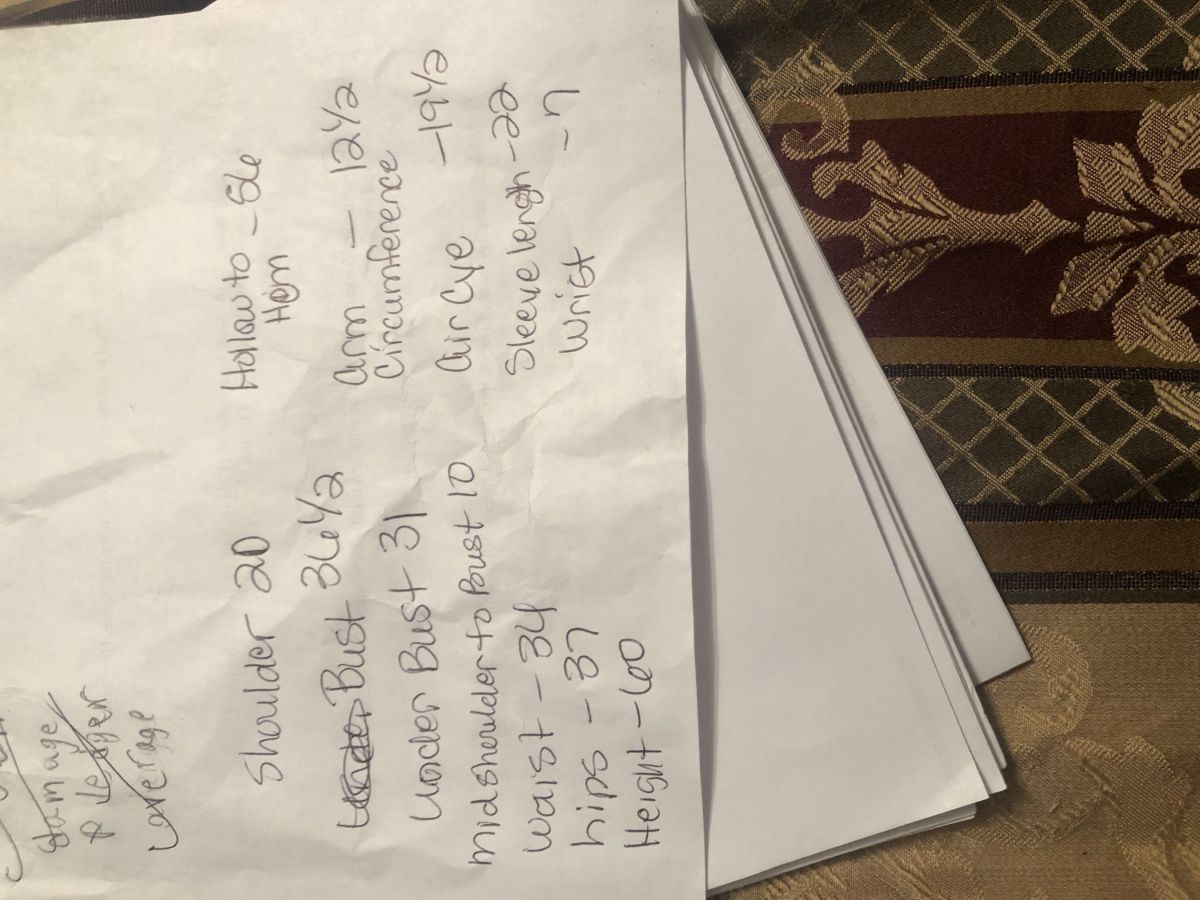 Shoulder 20
Bust 36 1/2
Under Bust 31
midshoulder to Bust 10
Waist - 34
hips - 37
Height - 60
Hollow to - 56
Hem
arm — 12 1/2
Circumference
air Cye - 19 1/2
Sleeve length - 22
Wrist - 7